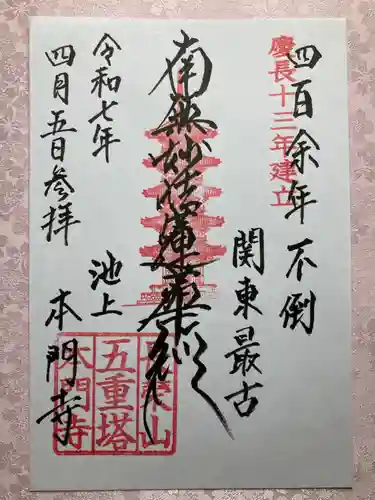 四百余年不倒
慶長十三年建立
関東最古
南無妙法蓮華経
令和七年
四月五日参拝
池上
本門寺
長榮山
五重塔
本門寺